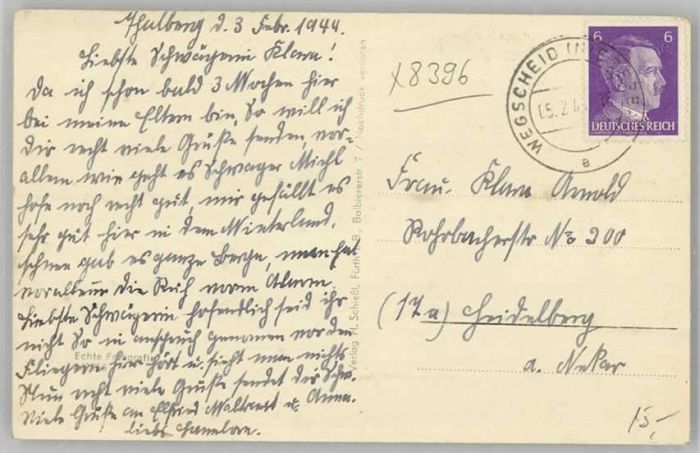 Thalberg d. 3 Febr. 1944.
Liebste Schwägerin Klara!
Da ich schon bald 3 Wochen hier
bei meine Eltern bin, So will ich
dir recht viele Grüße senden, vor
allem wie geht es Schwager Michl
hofe noch recht gut, mir gefällt es
sehr gut hier in dem Winterland.
schnee gab es ganze Berge, man hat
vor allem die Ruh vorm Alarm.
Liebste Schwägerin hofentlich seid ihr
nicht So in anspruch genomen vor den
Fliegern hier hört u. sieht man nichts
Nun recht viele Grüße sendet dir Schw.
Viele Grüße an Elfried Waltraut u. Anna.
liebs Hanelore.
Echte Fotografie
Verlag H. Schießl, Fürth i. B., Balbiererstr. 7 Nachdruck verboten
x8396
6 6
DEUTSCHES REICH
WEGSCHEID
a
Frau. Klara Arnold
Rohrbacherstr No 300
(17a) Heidelberg
a. Nekar
15,-